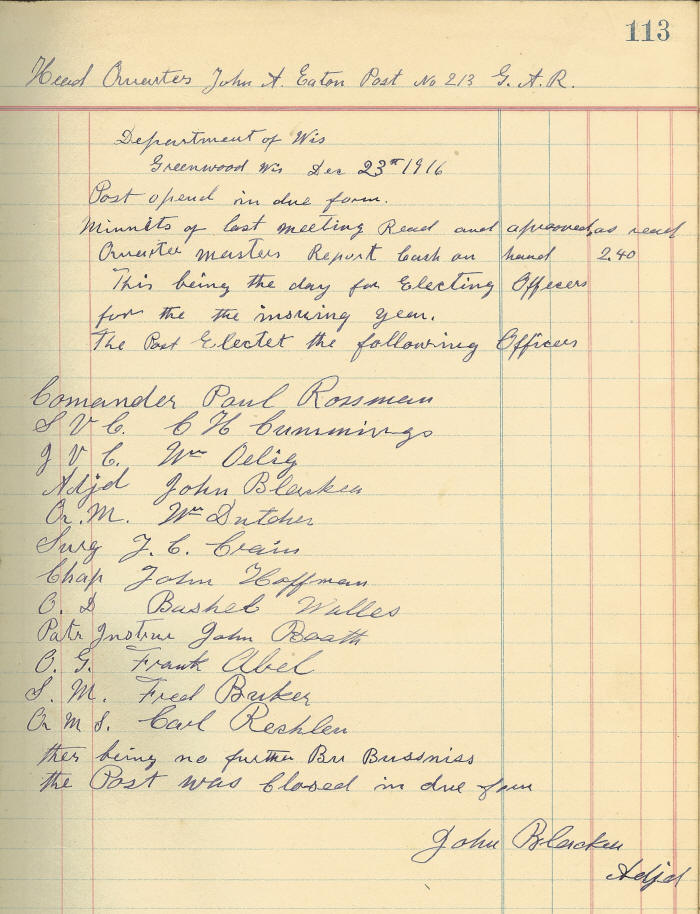 113
Head Quarters John A. Eaton Post No 213 G. A. R.
Department of Wis
Greenwood Wis Dec 23rd 1916
Post opend in due form.
Minnits of last meeting Read and aprooved, as read
Quarter masters Report Cash on hand 2.40
This being the day for Electing Officers
for the the insuing year.
The Post Electet the following Officers
Comander Paul Rossman
S V C. C H Cummings
J V C. Wm Oelig
Adjd John Blacken
Qr. M. Wm Dutcher
Surg J. C. Crain
Chap John Hoffman
O. D Bashel Walles
Patr Instruc John Booth
O. G. Frank Abel
S. M. Fred Buker
Qr M S. Carl Reshlen
ther being no further Bu Bussniss
the Post was Closed in due form
John Blacken
Adjd